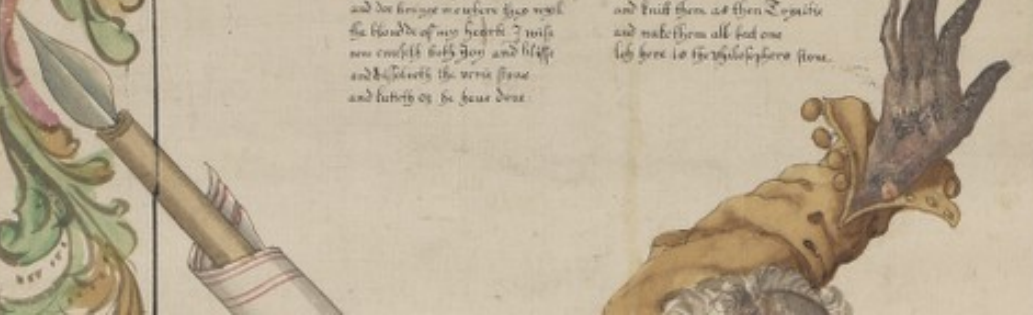 and doe bringe me where they wyll
the bloudde of my hearte I wiss
now causeth both Joy and blisse
and dissolveth the verie stone
and knitteth er he haue done
and knitt them as then Togither
and make them all but one
loh here is the Philosophers stone.